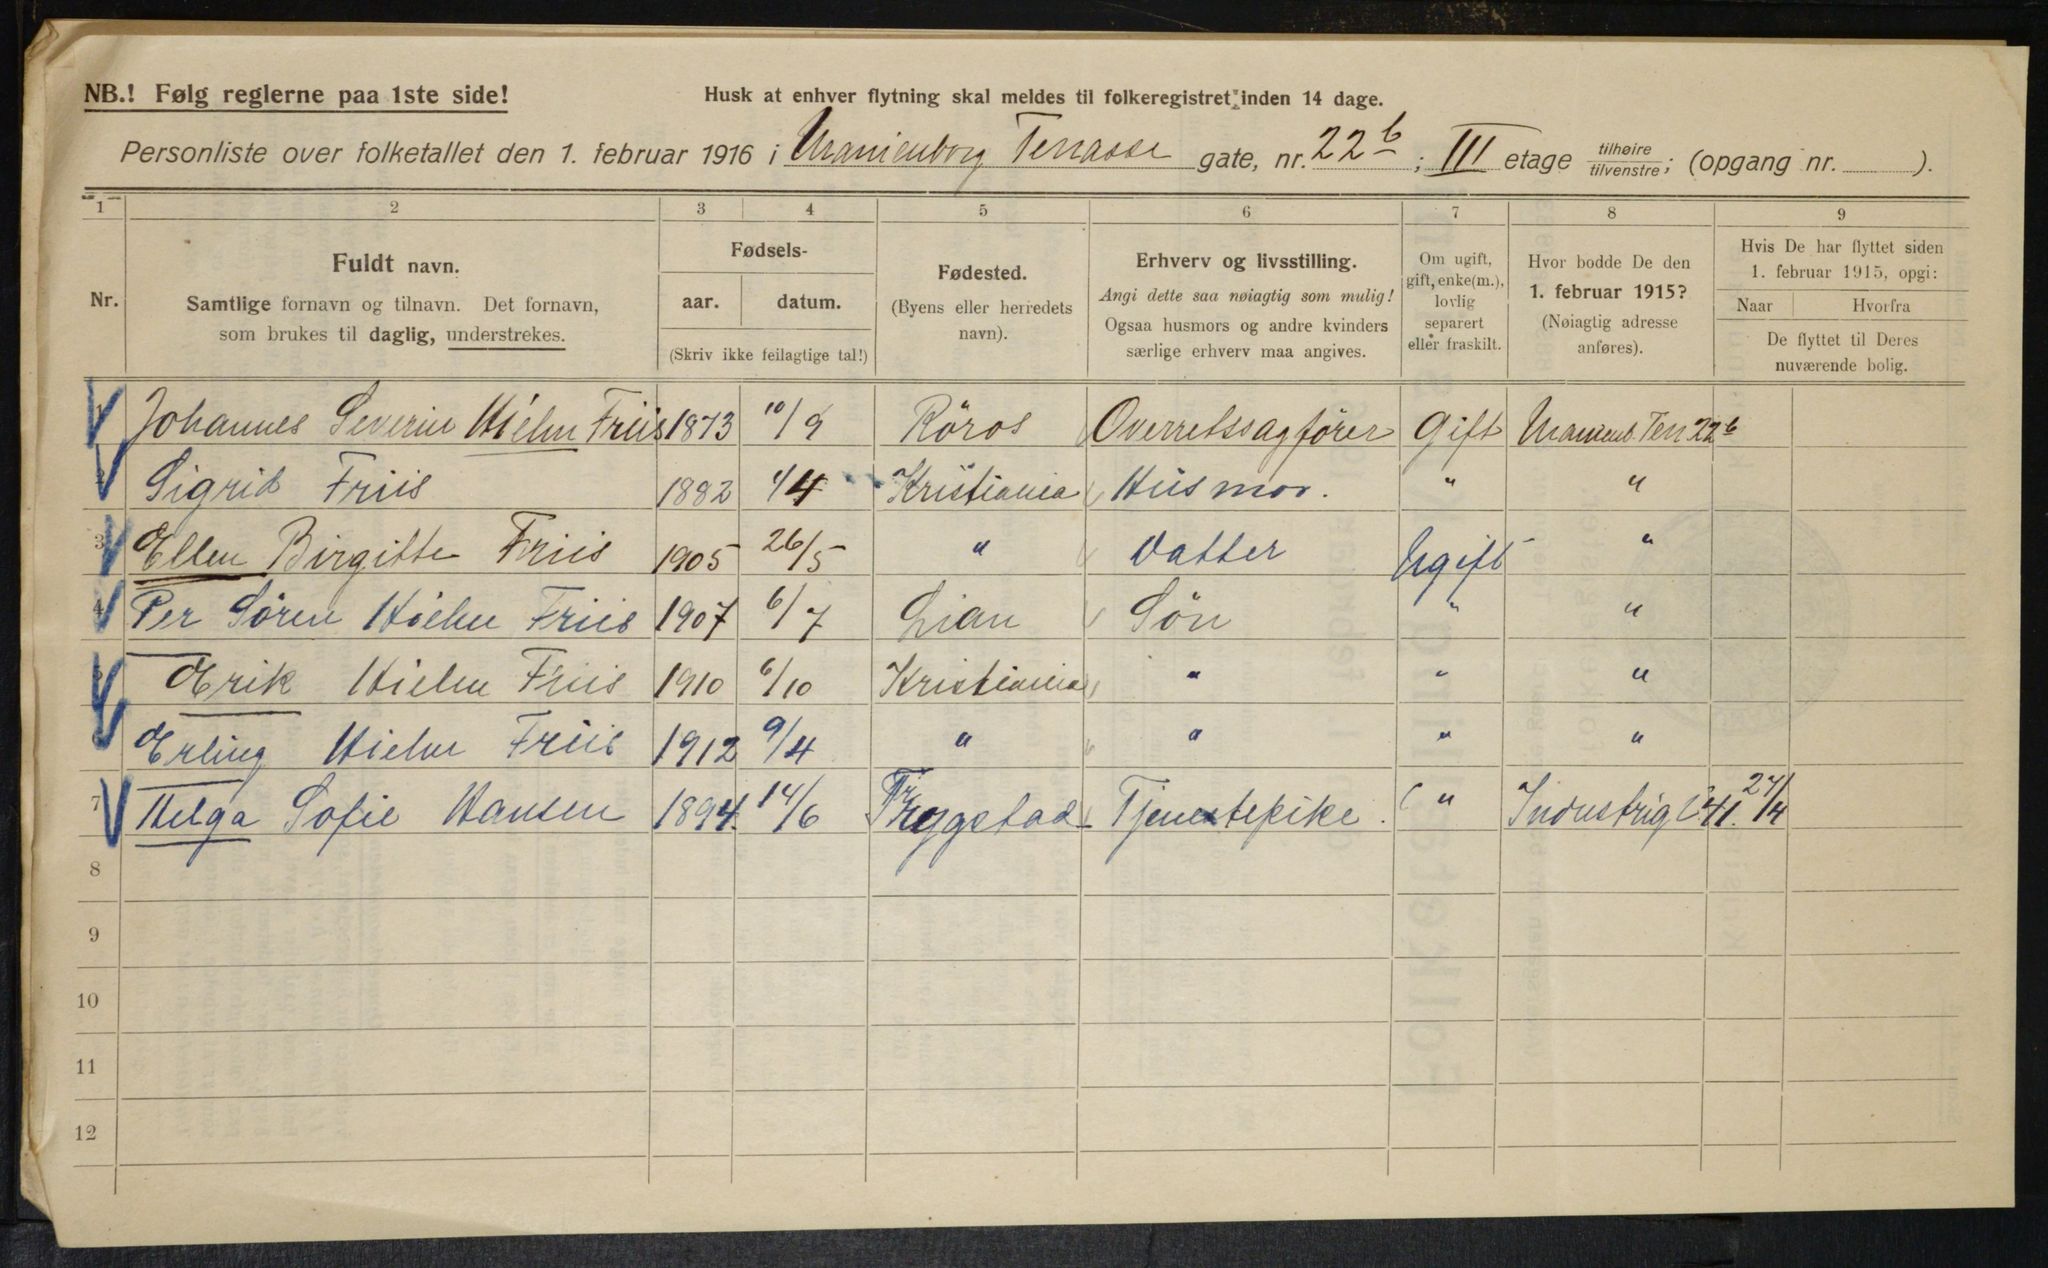 NB.! Følg reglerne paa 1ste side!
Husk at enhver flytning skal meldes til folkeregistret inden 14 dage.
Personliste over folketallet den 1. februar 1916 i Uranienborg Terrasse gate, nr. 22 b; III etage tilhøire/tilvenstre; (opgang nr. ).
1 2 3 4 5 6 7 8 9
Nr.
Fuldt navn.
Samtlige fornavn og tilnavn. Det fornavn,
som brukes til daglig, understrekes.
Fødsels-
aar. datum.
(Skriv ikke feilagtige tal!)
Fødested.
(Byens eller herredets
navn).
Erhverv og livsstilling.
Angi dette saa nøiagtig som mulig!
Ogsaa husmors og andre kvinders
særlige erhverv maa angives.
Om ugift,
gift, enke(m.),
lovlig
separert
eller fraskilt.
Hvor bodde De den
1. februar 1915?
(Nøiagtig adresse
anføres).
Hvis De har flyttet siden
1. februar 1915, opgi:
Naar Hvorfra
De flyttet til Deres
nuværende bolig.
Johannes Severin Hielm Friis 1873 10/9 Röros Overretssagfører Gift Uranienb. Terr 22 b
Sigrid Friis 1882 1/4 Kristiania Husmor. " "
3 Ellen Birgitte Friis 1905 26/5 " Datter Ugift "
4 Per Sören Hielm Friis 1907 6/7 Lian Sön " "
Erik Hielm Friis 1910 6/10 Kristiania " " "
Erling Hielm Friis 1912 9/4 " " " "
7 Helga Sofie Hansen 1894. 14/6 Tryggstad Tjenestepike. " Industrig 41. 27/4
8
9
10
11
12